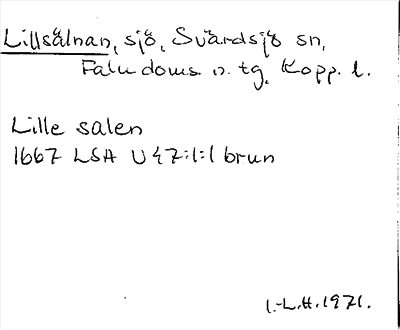 Lillsälnan, sjö, Svärdsjö sn,
Falu doms n. tg, Kopp. l.
Lille salen
1667 LSA U47:1:1 brun
I.-L.H. 1971.